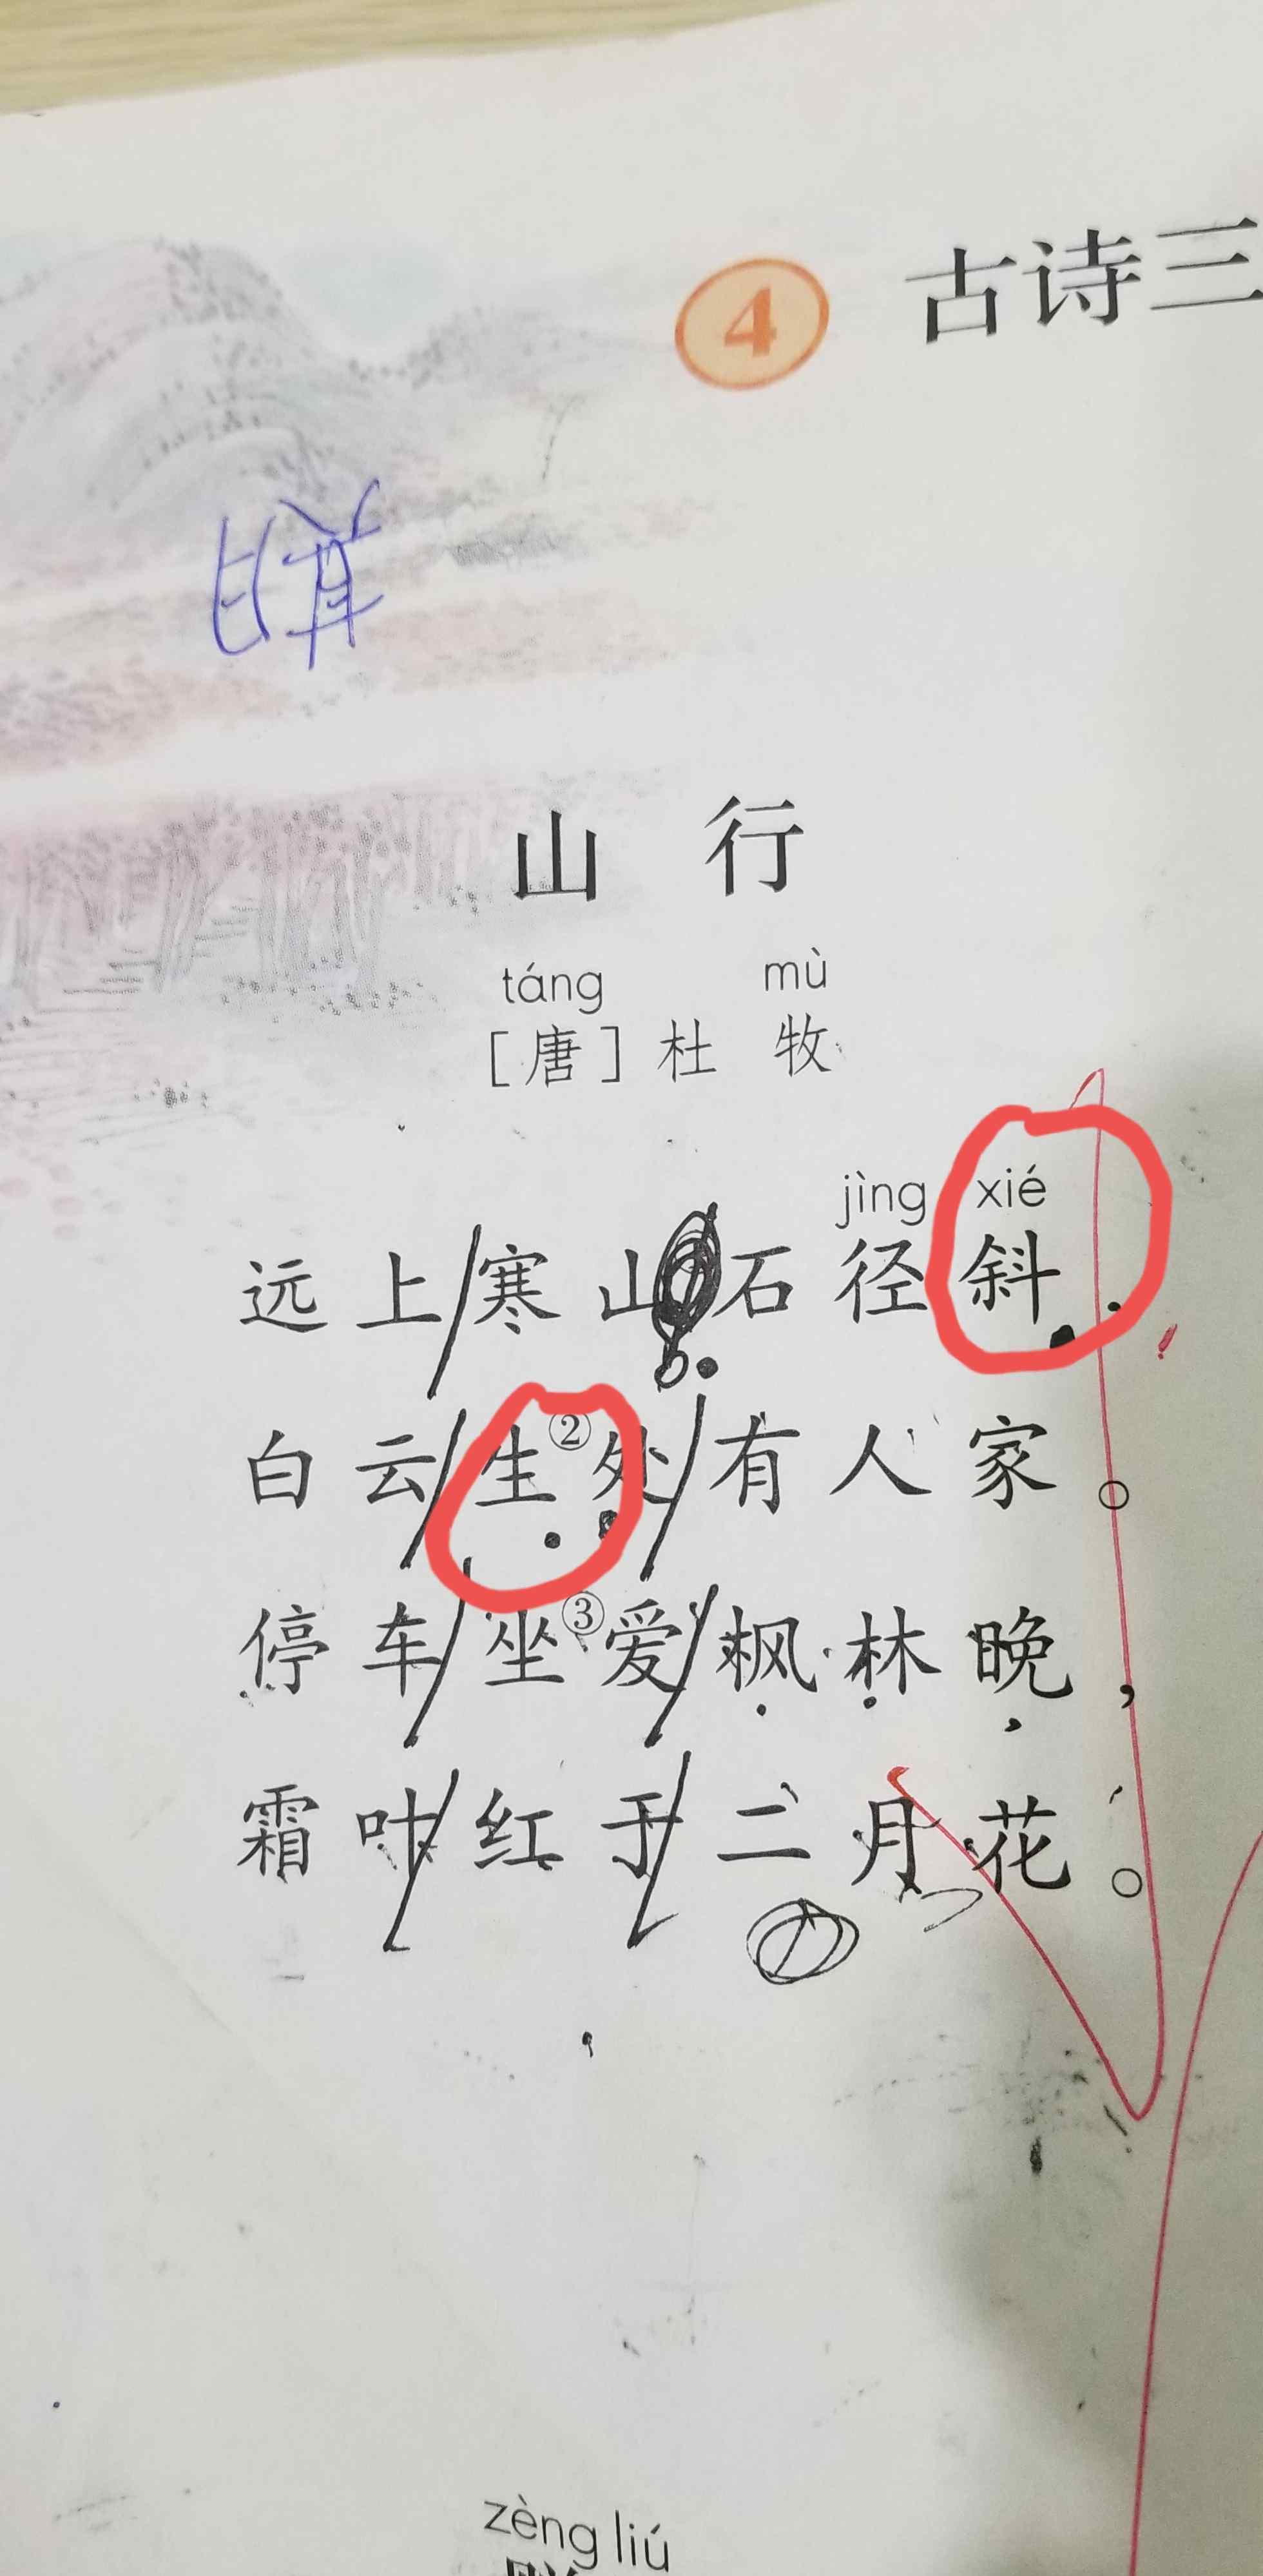 4 古诗三
山 行
táng mù
[唐]杜 牧
jìng xié
远上寒山石径斜
白云生②处有人家。
停车坐③爱枫林晚，
霜叶红于二月花。
zèng liú